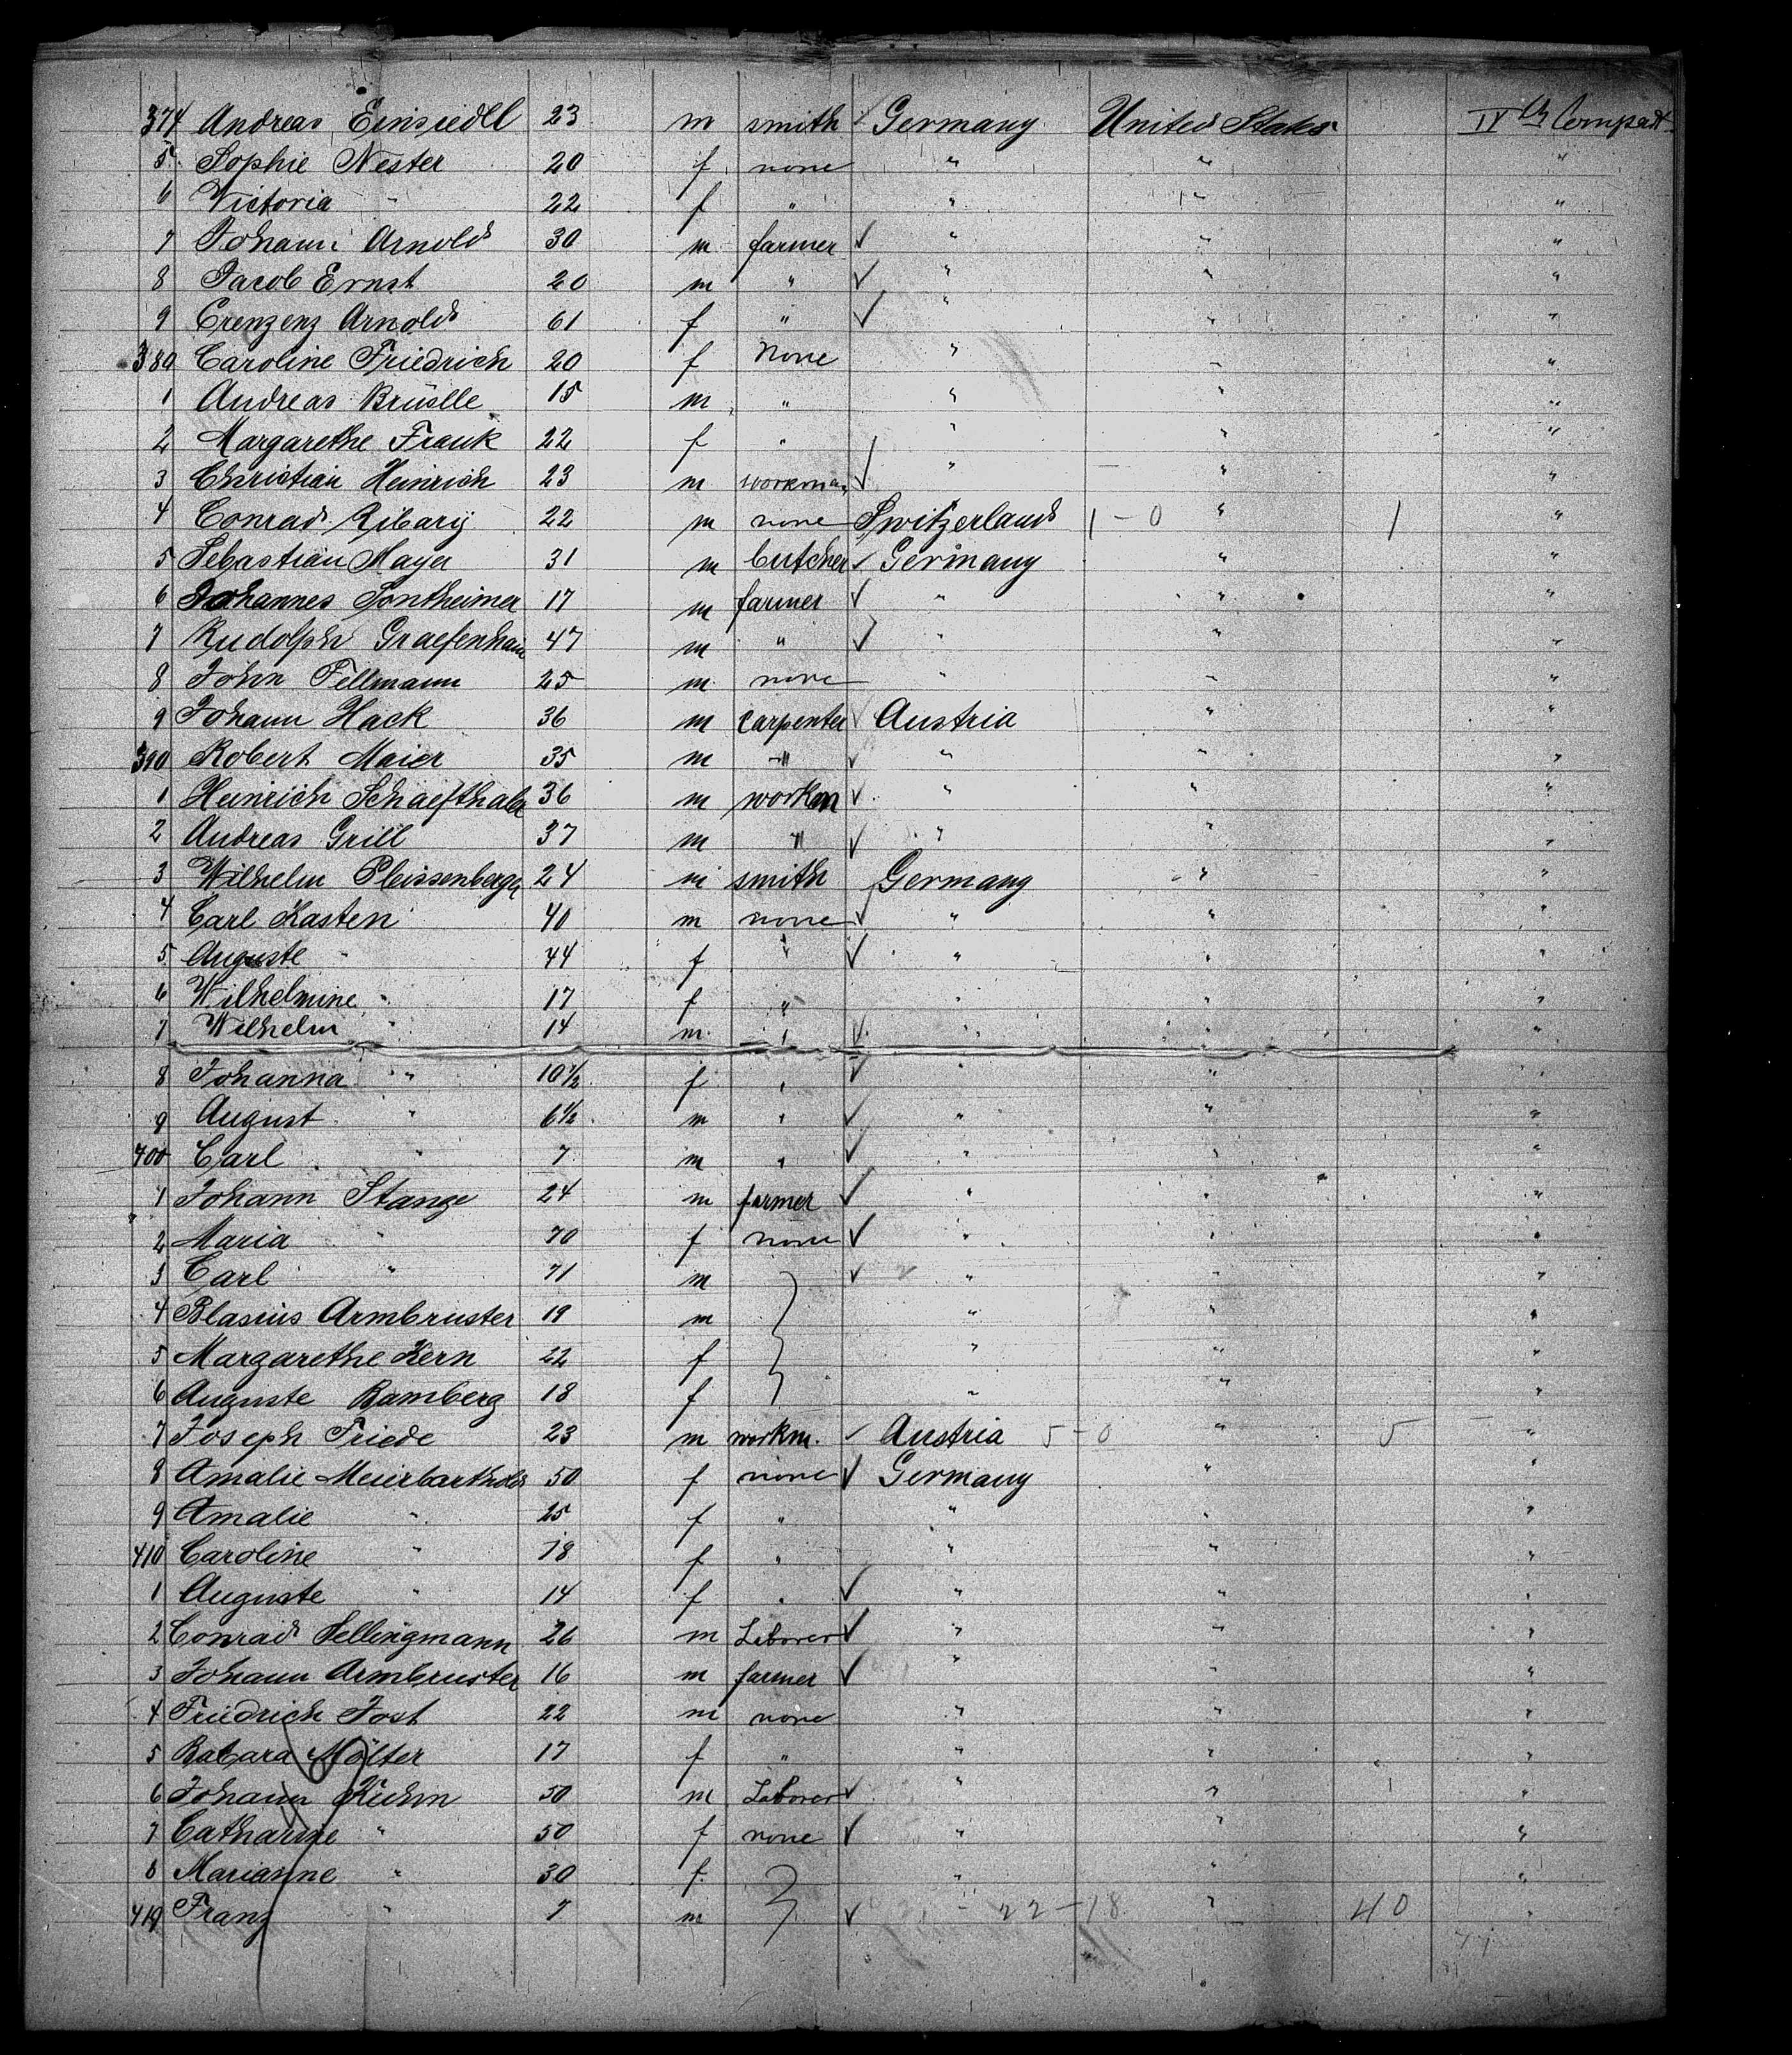 374 Andreas Einsiedel 23 m smith ✓ Germany United States IVth Compartt
5 Sophie Nester 20 f none " " "
6 Victoria " 22 f " " " "
7 Johann Arnold 30 m farmer ✓ " " "
8 Jacob Ernst 20 m " ✓ " " "
9 Crenzenz Arnold 61 f " ✓ " " "
380 Caroline Friedrich 20 f none " " "
1 Andreas Brüelle 15 m " " " "
2 Margarethe Frank 22 f " " " "
3 Christian Heinrich 23 m workman ✓ " " "
4 Conrad Ribary 22 m none Switzerland 1-0 " 1 "
5 Sebastian Mayer 31 m butcher ✓ Germany " "
6 Johannes Sontheimer 17 m farmer ✓ " " "
7 Rudolph Graefenhain 47 m " ✓ " " "
8 John Fellmann 25 m none " " "
9 Johann Hack 36 m carpenter ✓ Austria " "
390 Robert Maier 35 m " ✓ " " "
1 Heinrich Schaefthaler 36 m workm ✓ " " "
2 Andreas Grill 37 m " ✓ " " "
3 Wilhelm Pleissenberger 24 m smith Germany " "
4 Carl Kasten 40 m none ✓ " " "
5 Auguste " 44 f " ✓ " " "
6 Wilhelmine " 17 f " " " "
7 Wilhelm " 14 m " ✓ " " "
8 Johanna " 10½ f " ✓ " " "
9 August " 6½ m " ✓ " " "
400 Carl " 7 m " ✓ " " "
1 Johann Stange 24 m farmer ✓ " " "
2 Maria " 70 f none ✓ " " "
3 Carl " 71 m ✓ " " "
4 Blasius Armbruster 19 m " " "
5 Margarethe Kern 22 f " " "
6 Auguste Bamberg 18 f " " "
7 Joseph Friede 23 m workm. ✓ Austria 5-0 " 5 "
8 Amalie Meierbarthold 50 f none ✓ Germany " "
9 Amalie " 25 f " " " "
410 Caroline " 18 f " " " "
1 Auguste " 14 f " ✓ " " "
2 Conrad Sellingmann 26 m Laborer ✓ " " "
3 Johann Armbruster 16 m farmer ✓ " " "
4 Friedrich Jost 22 m none " " "
5 Babara Mölter 17 f " " " "
6 Johann Kuhn 50 m Laborer ✓ " " "
7 Catharine " 50 f none ✓ " " "
8 Marianne " 30 f " " "
419 Franz " 7 m ✓ 22-18 " 40 "